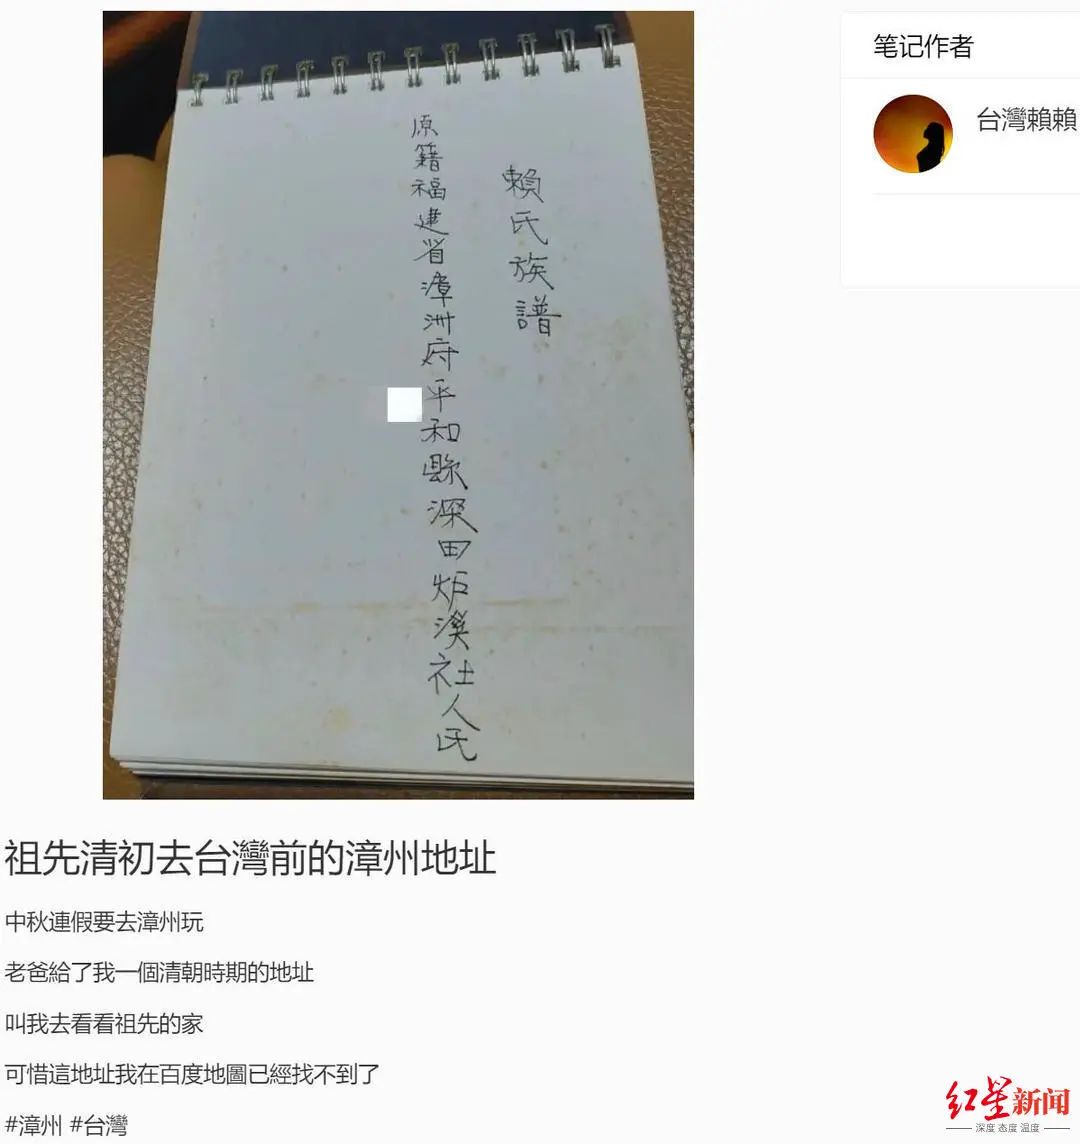 賴氏族譜
原籍福建省漳洲府平和縣深田炉溪社人民
笔记作者
台灣賴賴
祖先清初去台灣前的漳州地址
中秋連假要去漳州玩
老爸給了我一個清朝時期的地址
叫我去看看祖先的家
可惜這地址我在百度地圖已經找不到了
#漳州 #台灣
红星新闻
深度 态度 温度